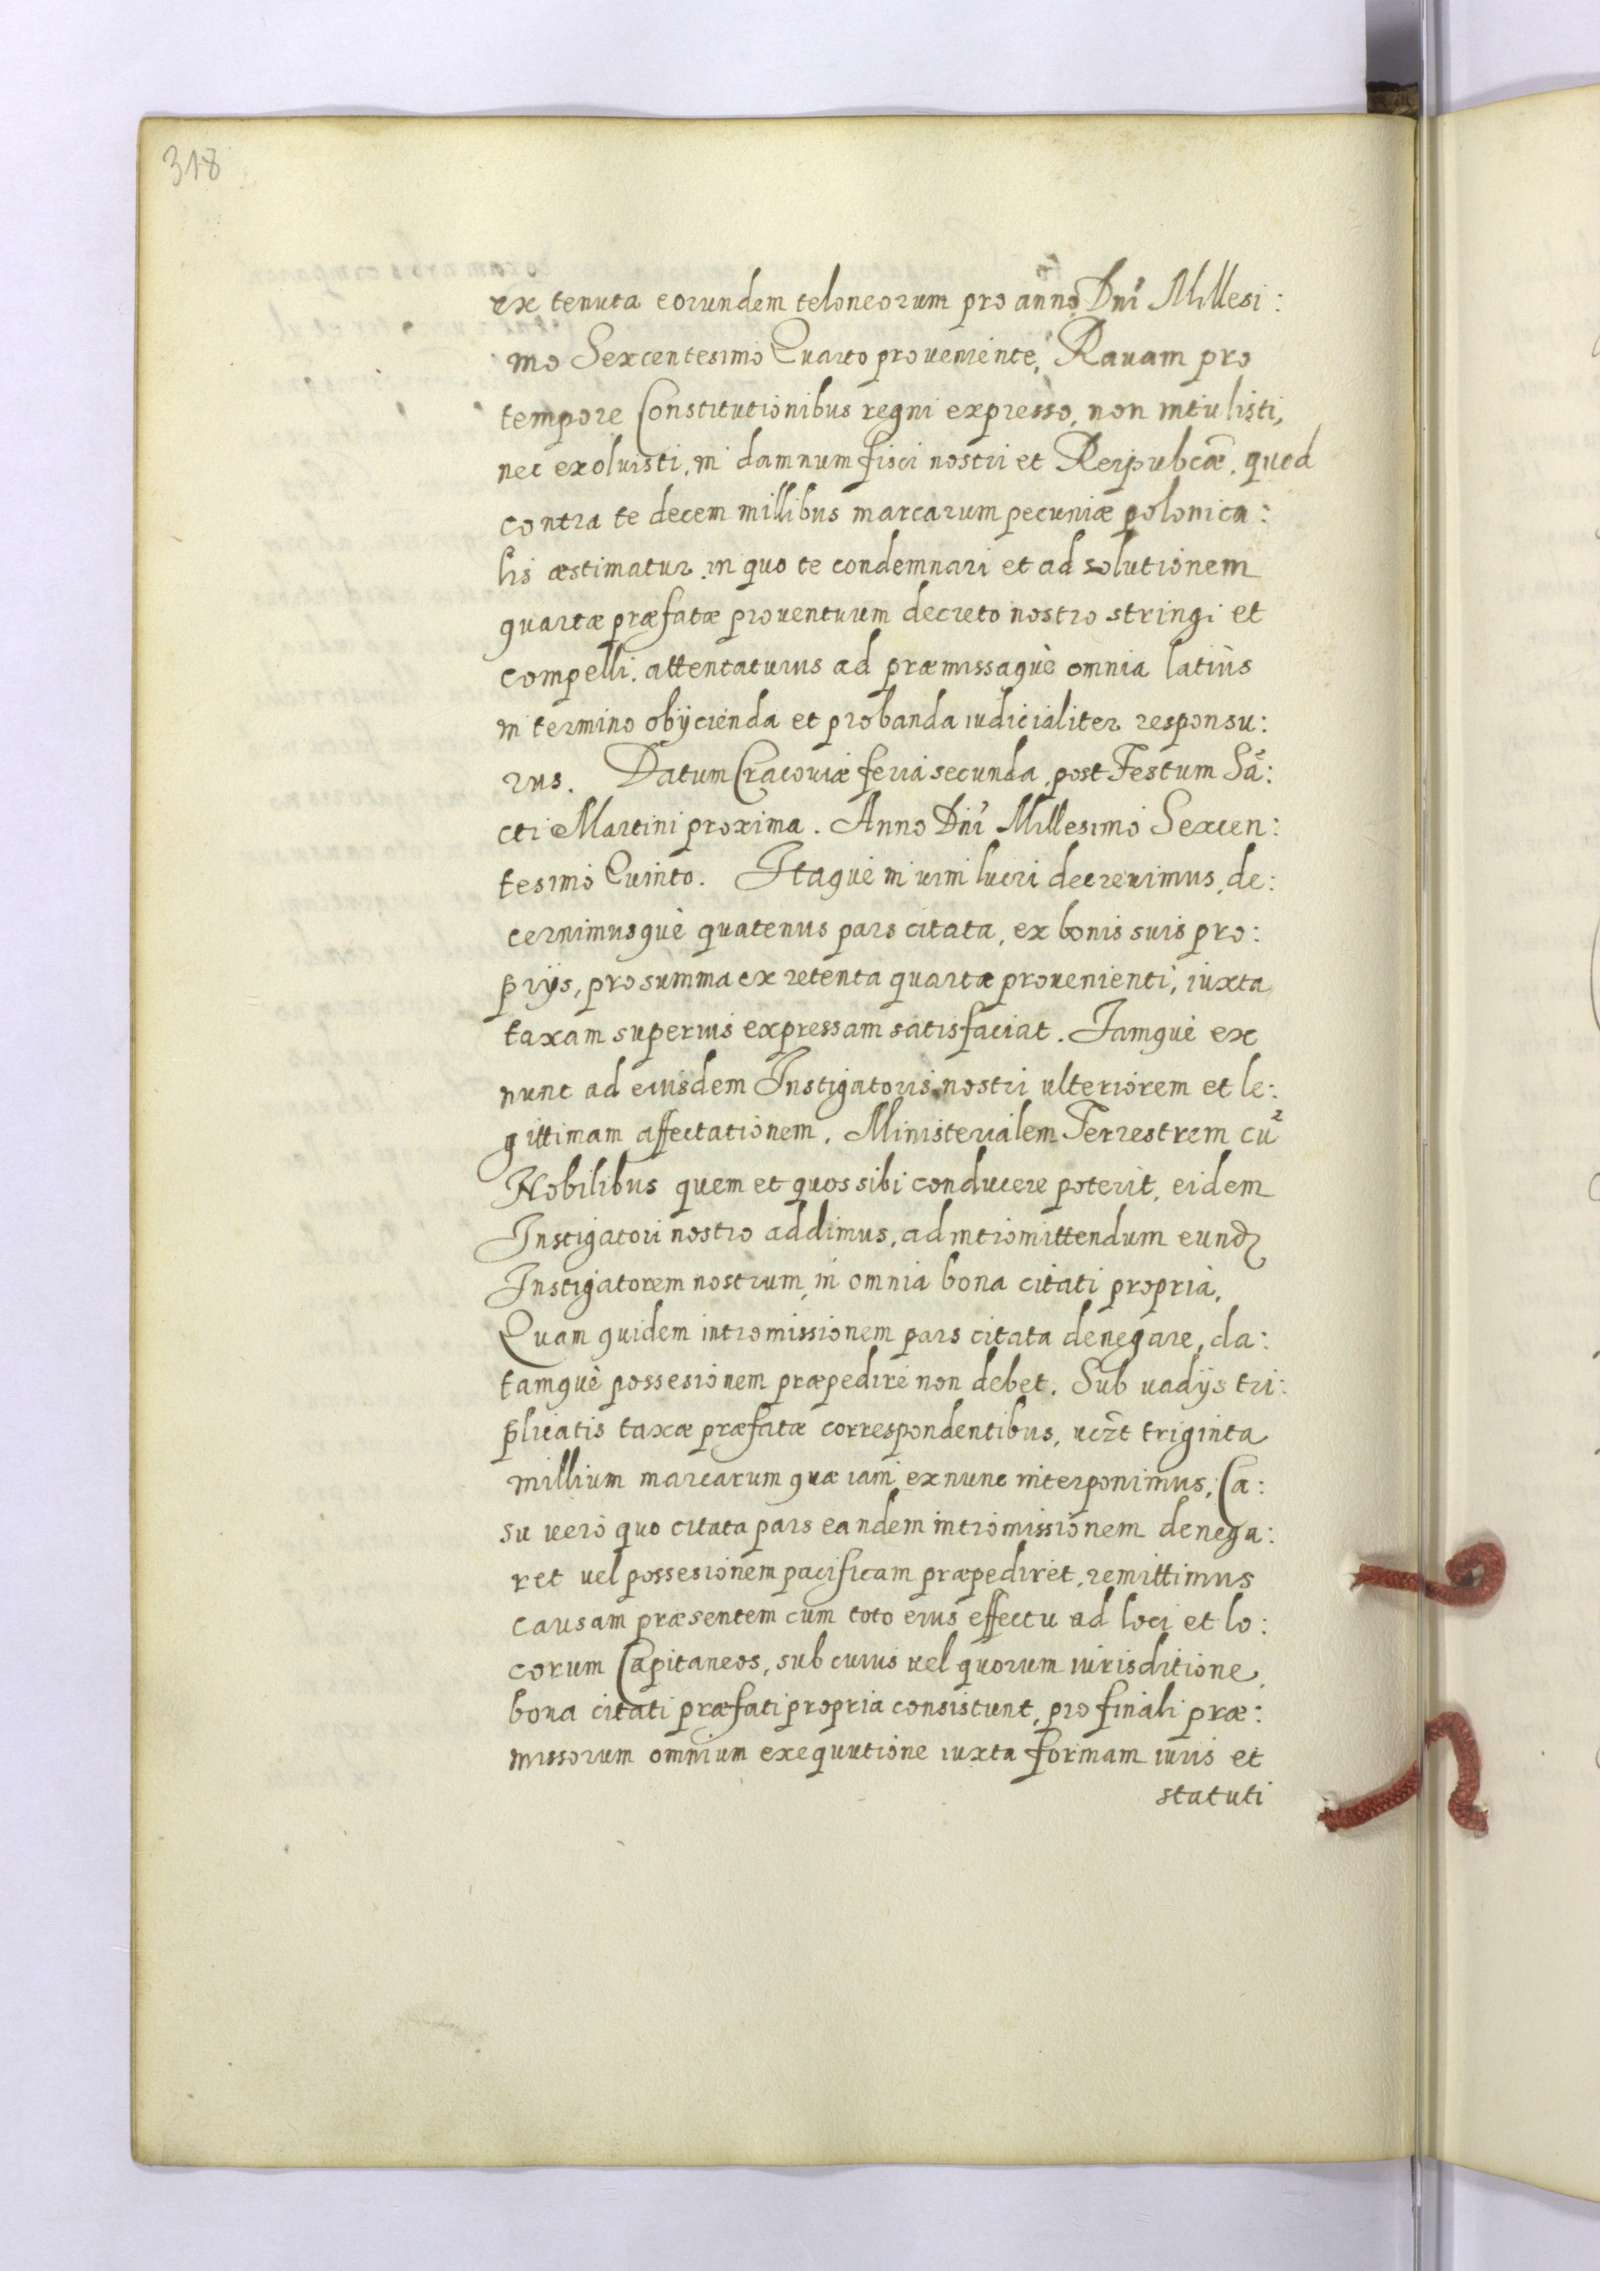 318
ex tenuta eorundem teloneorum pro anno Dni Millesi:
mo Sexcentesimo Quarto proveniente, Ravam pro
tempore Constitutionibus regni expresso, non intulisti,
nec exolvisti, in damnum fisci nostri et Reipubcæ, quod
contra te decem millibus marcarum pecuniæ polonica:
lis æstimatur, in quo te condemnari et ad solutionem
quartæ præfatæ proventuum decreto nostro stringi et
compelli. attentaturus ad præmissaquè omnia latiùs
in termino obijcienda et probanda iudicialiter responsu:
rus. Datum Cracoviæ feria secunda, post Festum Sã:
cti Martini proxima. Anno Dni Millesimo Sexcen:
tesimo Quinto. Itaquè in vim lucri decrevimus, de:
cernimusquè quatenus pars citata, ex bonis suis pro:
prijs, pro summa ex retenta quartæ provenienti, iuxta
taxam superius expressam satisfaciat. Iamquè ex
nunc ad eiusdem Instigatoris nostri ulteriorem et le:
gittimam affectationem, Ministerialem Terrestrem cũ
Nobilibus quem et quos sibi conducere poterit, eidem
Instigatori nostro addimus, ad intromittendum eund
Instigatorem nostrum, in omnia bona citati propria,
Quam quidem intromissionem pars citata denegare, da:
tamquè possesionem præpedire non debet. Sub vadijs tri:
plicatis taxæ præfatæ correspondentibus, vczt triginta
millium marcarum quæ iam ex nunc interponimus, Ca:
su verò quo citata pars eandem intromissionem denega:
ret vel possesionem pacificam præpediret, remittimus
causam præsentem cum toto eius effectu ad loci et lo:
corum Capitaneos, sub cuius vel quorum iurisditione,
bona citati præfati propria consistunt, pro finali præ:
missorum omnium exequutione iuxta formam iuris et
statuti